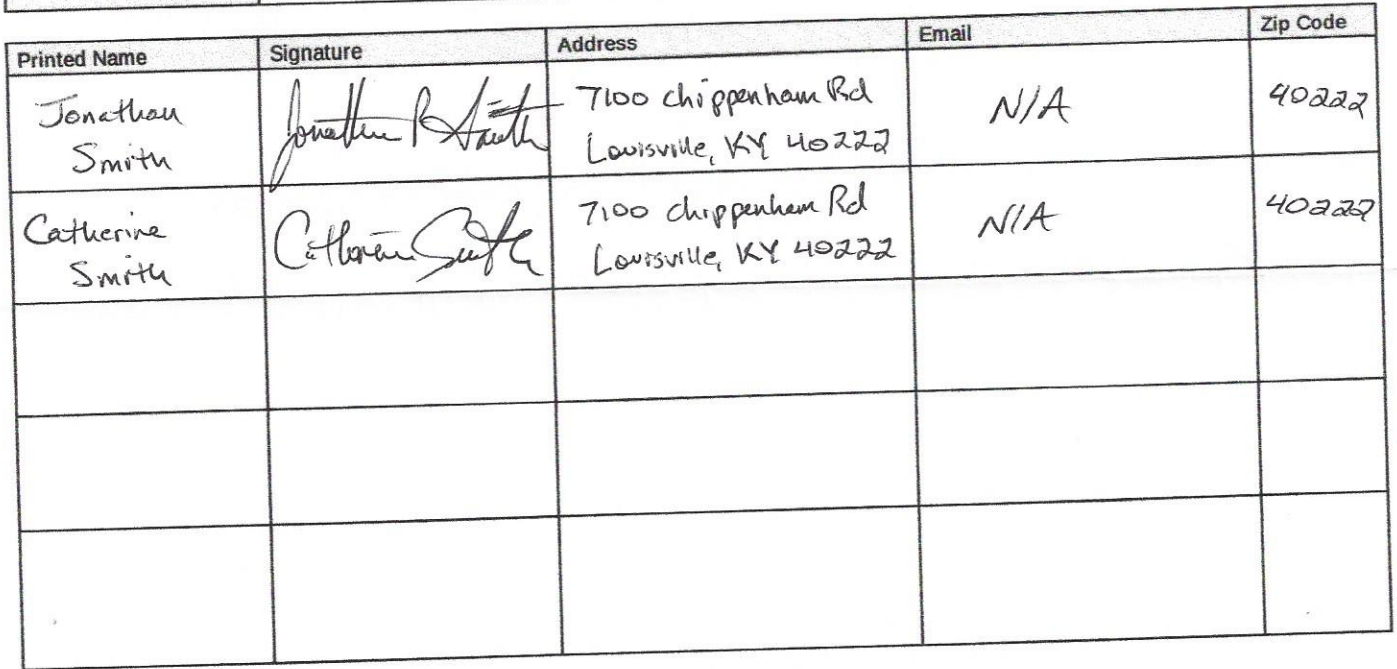 Printed Name Signature Address Email Zip Code
Jonathan
Smith
Jonathan R Smith
7100 Chippenham Rd
Louisville, KY 40222
N/A
40222
Catherine
Smith
Catherine Smith
7100 Chippenham Rd
Louisville, KY 40222
N/A
40222